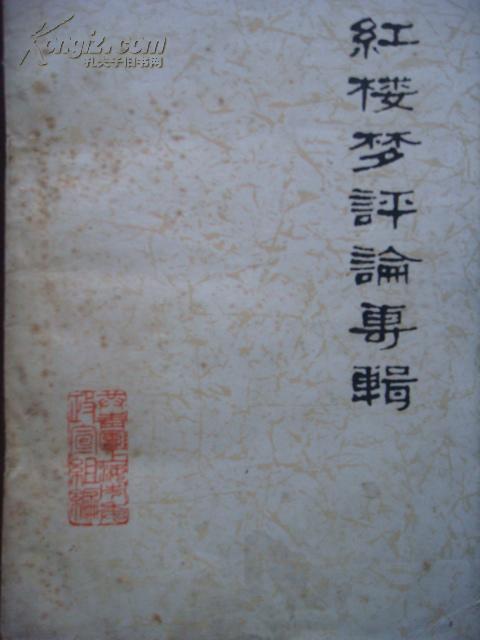 Kongfz.com
孔夫子旧书网
紅楼梦評論專輯
政宣组编